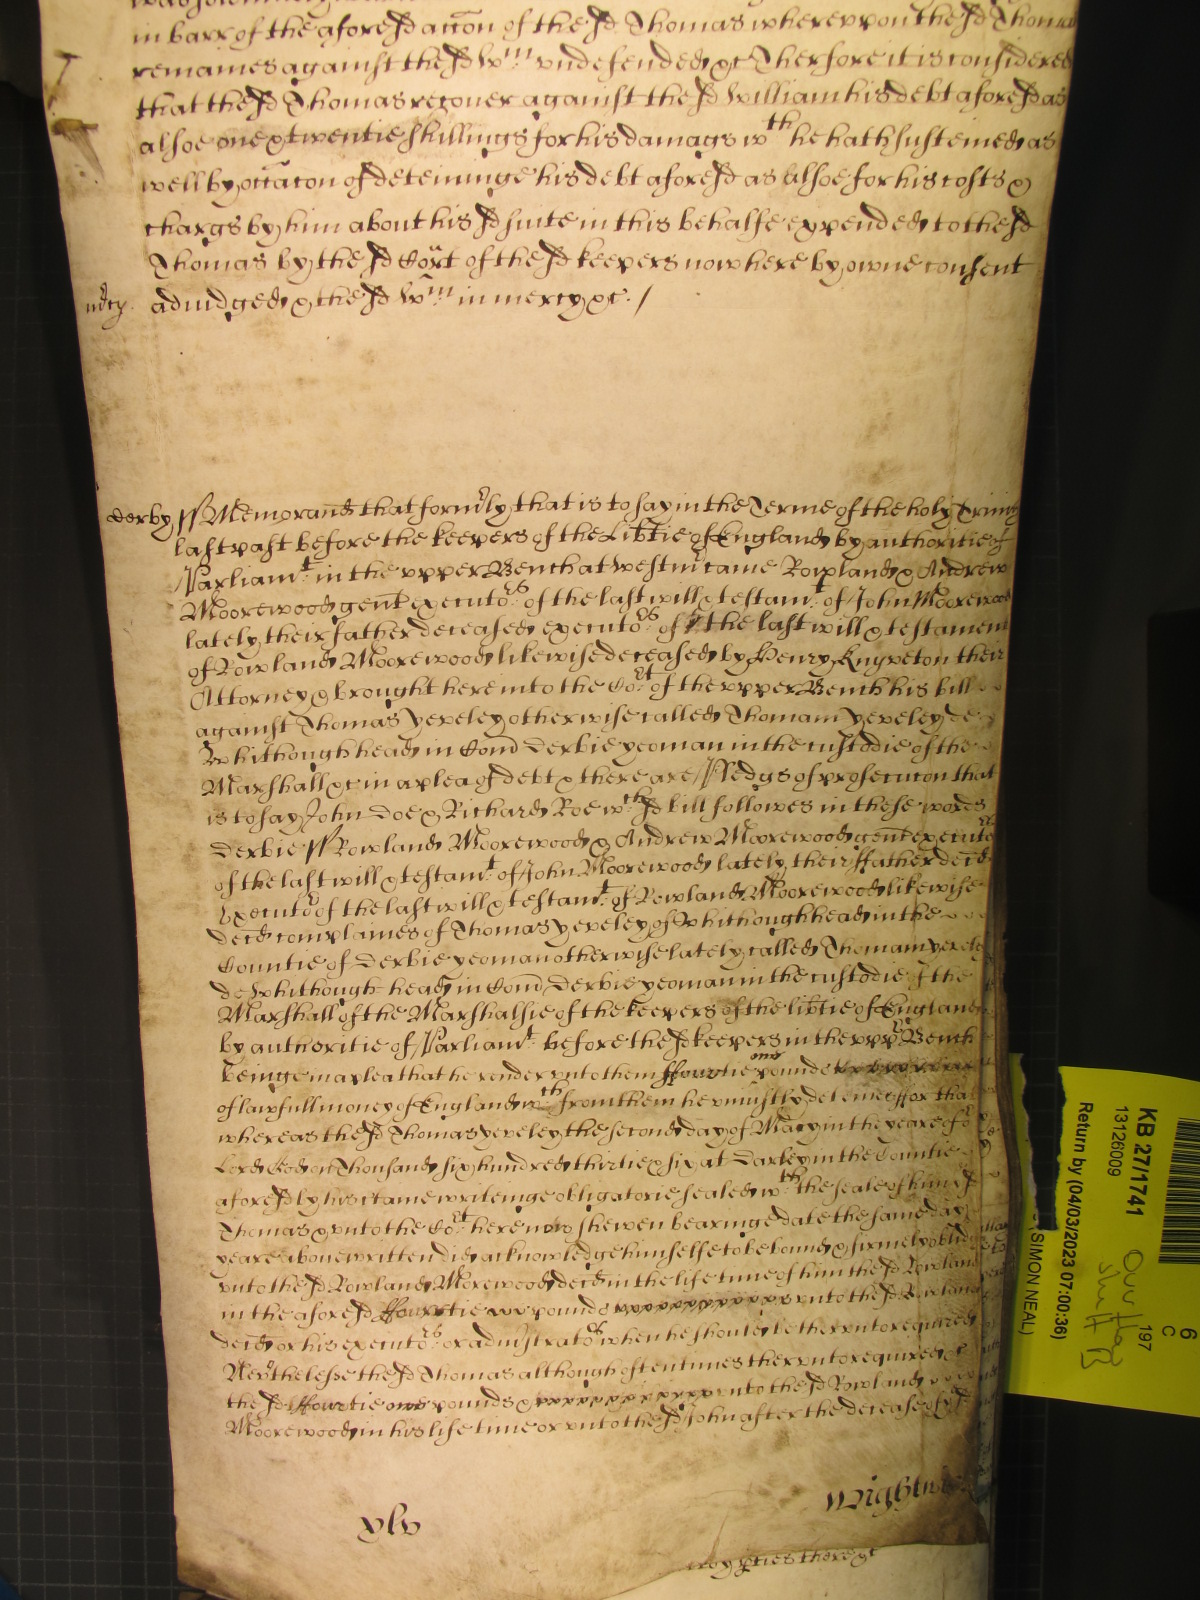 in barr of the aforesd accon of the sd Thomas wherevpon the sd Thomas
remaines against the sd Wm vndefended &c Therfore it is considered
that the sd Thomas recouer against the sd William his debt aforesd as
alsoe one & twentie shillings for his damags wth he hath susteined as
well by occacon of deteininge his debt aforesd as alsoe for his costs &
chargs by him about his sd suite in this behalfe expended to the sd
Thomas by the sd Court of the sd keepers now here by owne consent
mcy. adiudged & the sd Wm in mercy &c. /
derby ss Memorand that formly that is to say in the Terme of the holy Trinity
last past before the keepers of the Libtie of England by authoritie of
Parliamt in the vpper Bench at Westmr came Rowland & Andrew
Moorewood gent executors of the last will & testamt of John Moorewood
lately their father deceased executors of the last will & testament
of Rowland Moorewood likewise deceased by Henry Knyveton their
Attorney & brought here into the Cort of the vpper Bench his bill
against Thomas Yeveley otherwise called Thomam Yeveley de
Whithoughhead in Com Derbie yeoman in the custodie of the
Marshall &c in a plea of debt & there are Pledgs of prosecucon that
is to say John Doe & Richard Roe wch sd bill followes in these words
Derbie ss Rowland Moorewood & Andrew Moorewood gent executors
of the last will & testamt of John Moorewood lately their ffather decd
Executor of the last will & testamt of Rowland Moorewood likewise
decd complaines of Thomas Yeveley of Whithoughhead in the
Countie of Derbie yeoman otherwise lately called Thomam Yeveley
de Whithough head in Com Derbie yeoman in the custodie of the
Marshall of the Marshalsie of the keepers of the libtie of England
by authoritie of Parliamt before the sd keepers in the vppr Bench
beinge in a plea that he render vnto them ffourtie one pounds
of lawfull money of England wch from them he vniustly deteines ffor that
whereas the sd Thomas Yeveley the second day of May in the yeare of or
Lord God on Thousand six hundred thirtie & six at Darley in the Countie
aforesd by his ctaine writeinge obligatorie sealed wth the seale of him sd
Thomas & vnto the Cort here now shewen bearinge date the same day &
yeare aboue written did acknowledge himselfe to be bound & firmely oblidged
vnto the sd Rowland Moorewood decd in the life time of him the sd Rowland
in the aforesd ffourtie one pounds vnto the sd Rowland
decd or his executors or administrators when he should be thervnto required
Nevthelesse the sd Thomas although oftentimes thervnto required
the sd ffourtie one pounds vnto the sd Rowland
Moorewood in his life time or vnto the sd John after the decease of
xlv
KB 27/1741
13126009
Return by (04/03/2023 07:00:36)
(SIMON NEAL)
197
6
C